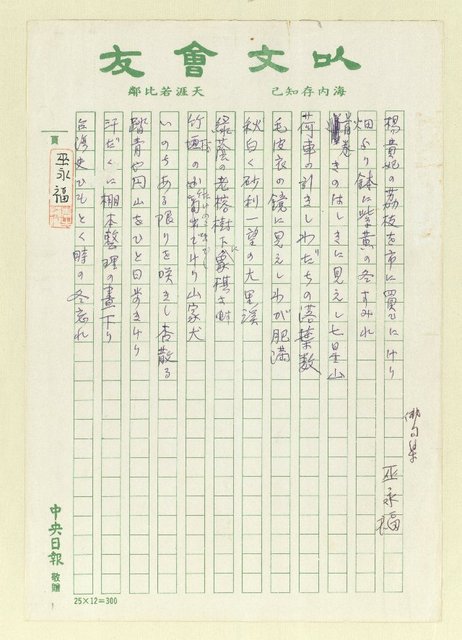 以文會友
海内存知己 天涯若比鄰
俳句集 巫永福
楊貴妃の茘枝を市に買ひにけり
畑より鉢に紫黄の冬すみれ
きのはしきに見えし七星山
荷車の引きしわだちの落葉数
毛皮夜の鏡に見えしわが肥満
秋白く砂利一望の大里溪
緑蔭の老榕樹下象棋さす
竹垣の出でけり山家犬
いのちある限りを咲きし杏散る
踏青や円山をひと日歩きけり
汗だくに棚本整理の書下り
台湾史ひもとく時の冬忘れ
頁
巫永福
中央日報 敬贈
25×12=300